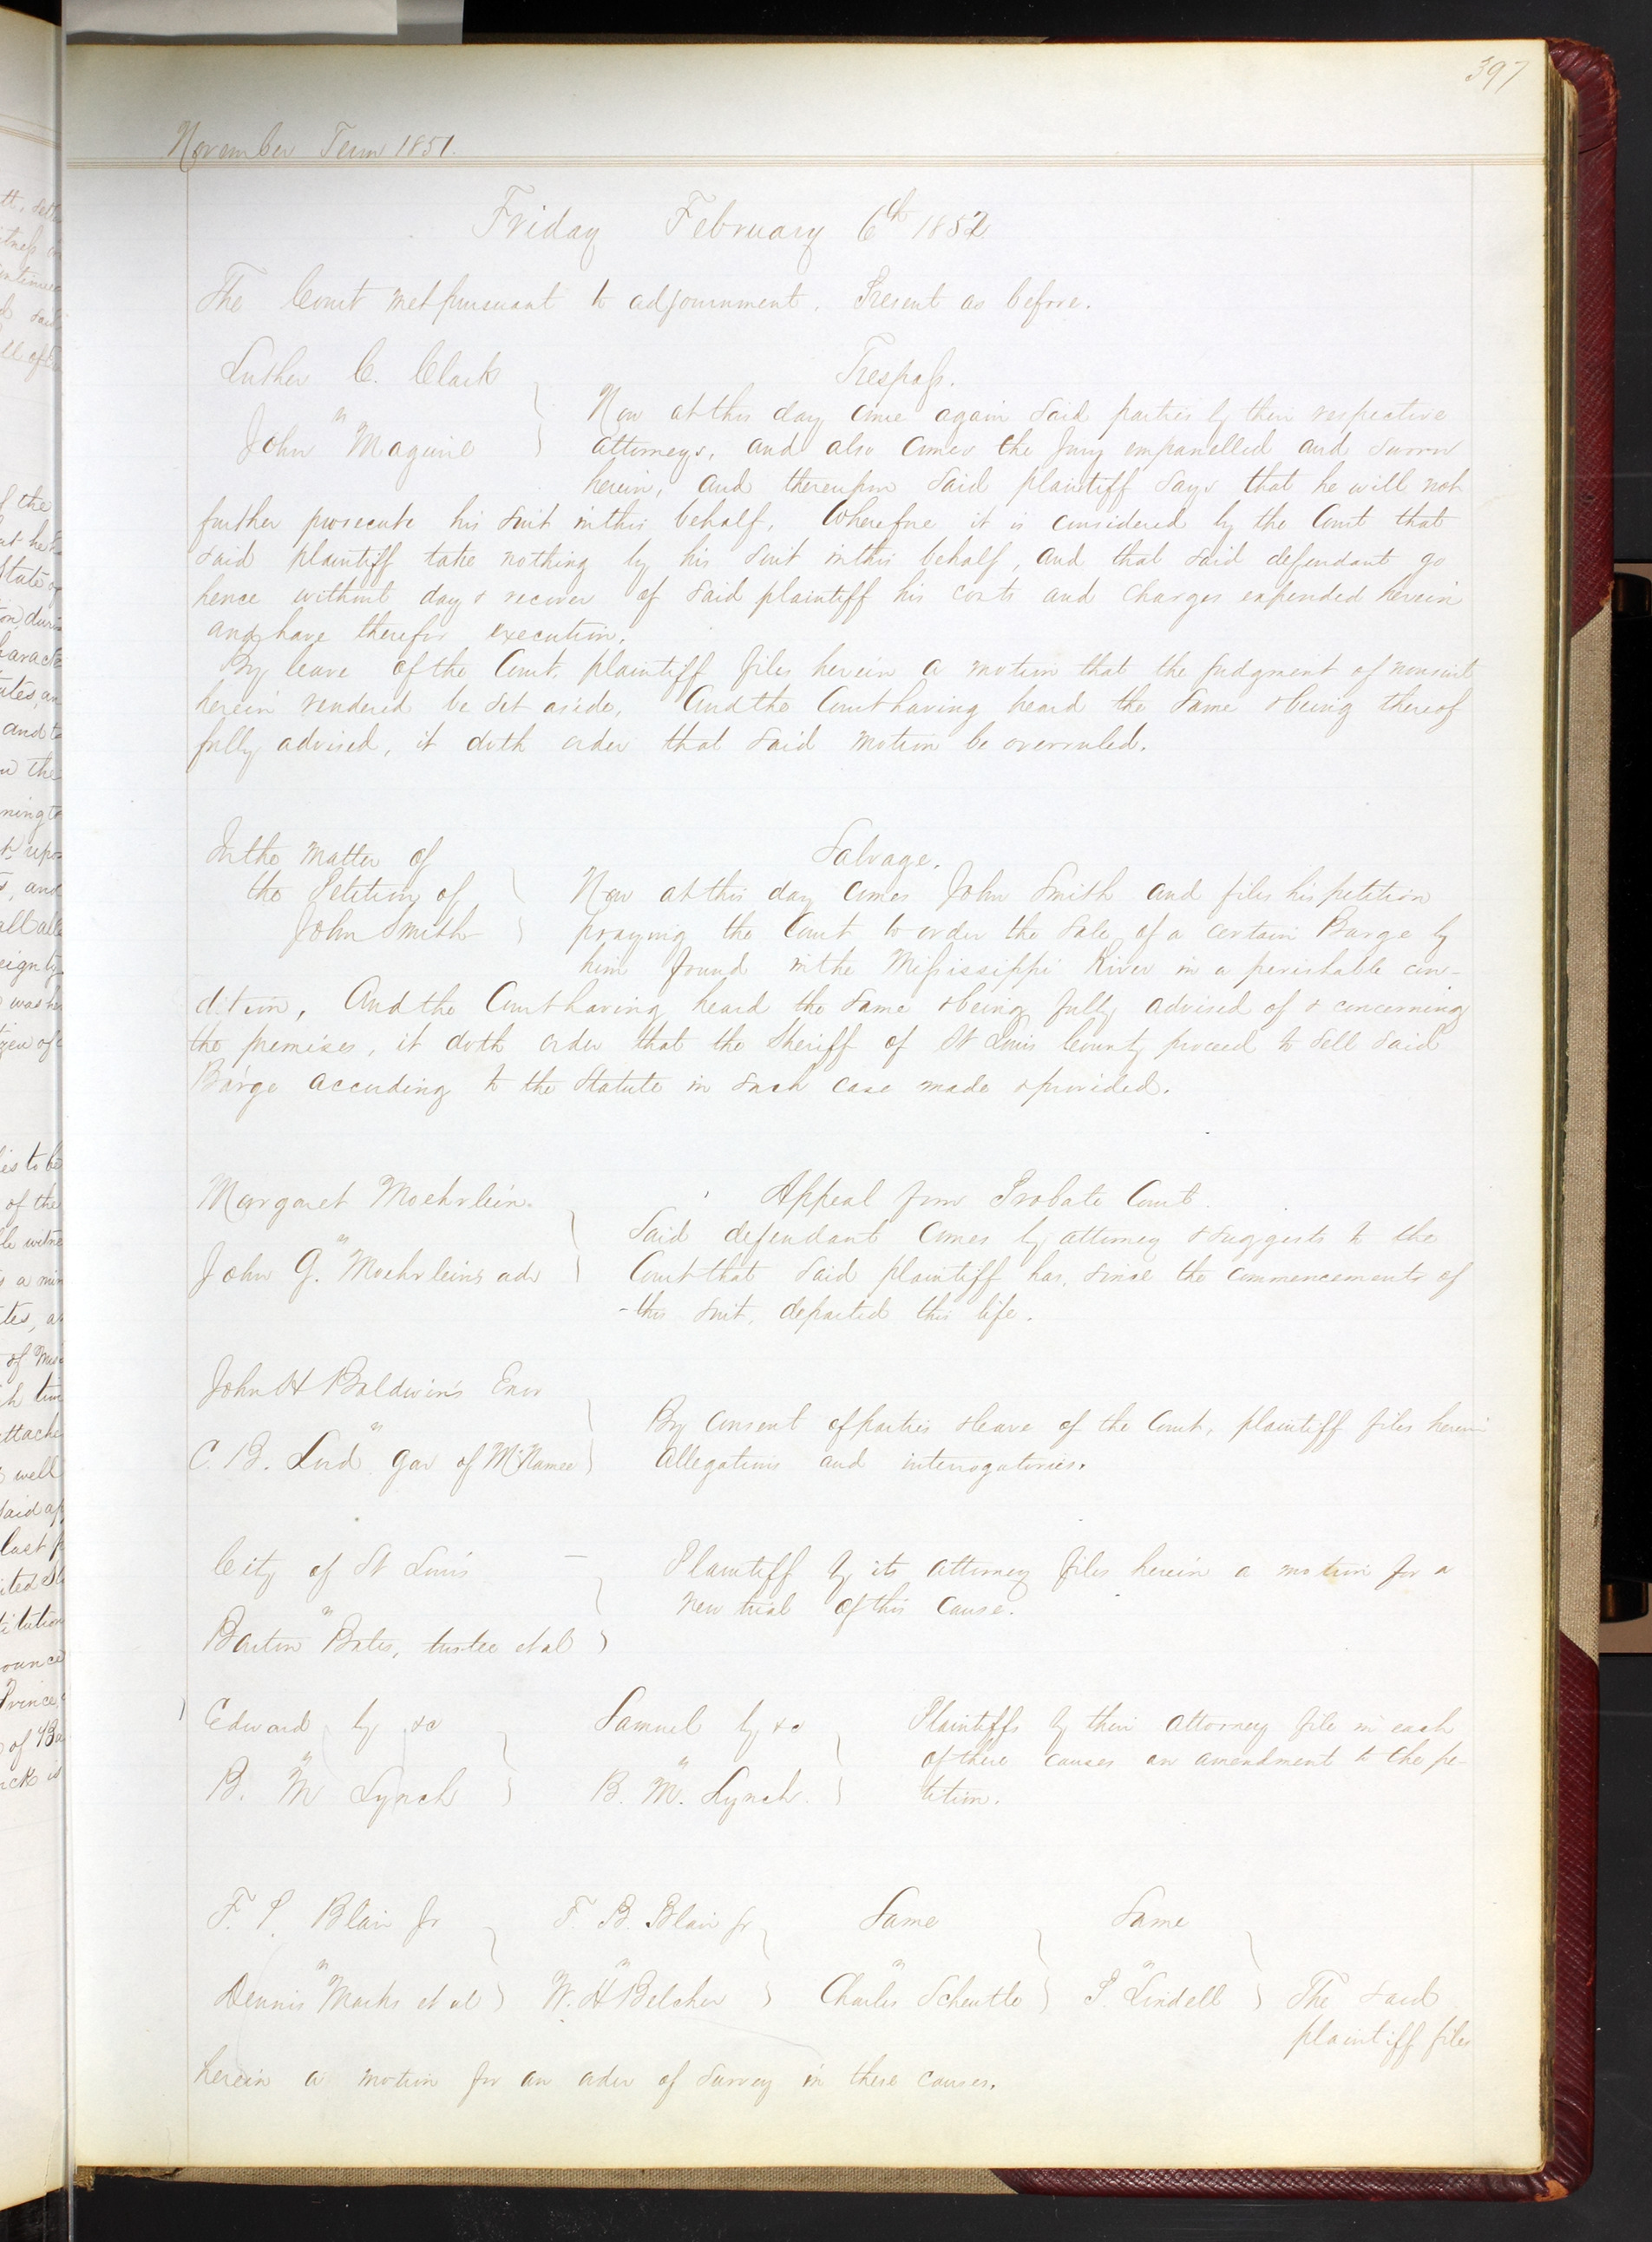 397
November Term 1851.
Friday February 6th 1852
The Court met pursuant to adjournment. Present as before.
Luther C. Clark
"
John Maguire
Trespass.
Now at this day come again said parties by their respective
attorneys, and also comes the Jury empanelled and sworn
herein, and thereupon said plaintiff says that he will not
further prosecute his suit in this behalf. Wherefore it is considered by the Court that
said plaintiff take nothing by his suit in this behalf, and that said defendant go
hence without day & recover of said plaintiff his costs and charges expended herein
and have therefor execution.
By leave of the Court, plaintiff files herein a motion that the judgment of nonsuit
herein rendered be set aside. And the Court having heard the same & being thereof
fully advised, it doth order that said motion be overruled.
In the Matter of
the Petition of
John Smith
Salvage.
Now at this day comes John Smith and files his petition
praying the Court to order the sale of a certain Barge by
him found in the Mississippi River in a perishable con-
dition, And the Court having heard the same & being fully advised of & concerning
the premises, it doth order that the Sheriff of St Louis County proceed to sell said
Barge according to the Statute in such case made & provided.
Margaret Moehrlein.
"
John G. Moehrleins adr
Appeal from Probate Court.
Said defendant comes by attorney & suggests to the
Court that said plaintiff has, since the commencement of
this suit, departed this life.
John H Baldwin's Exor
"
C. B. Lord gar of McNamee
By consent of parties & leave of the Court, plaintiff files herein
allegations and interrogatories.
City of St Louis
"
Barton Bates, trustee et al
Plaintiff by its attorney files herein a motion for a
new trial of this cause.
Edward by &c
"
B. M Lynch
Samuel by &c
"
B. M. Lynch.
Plaintiffs by their attorney file in each
of these causes an amendment to the pe-
tition.
F. P. Blair Jr
"
Dennis Marks et al
F. B. Blair Jr
"
W. H Belcher
Same
"
Charles Scheutte
Same
"
P. Lindell
The said
plaintiff files
herein a motion for an order of survey in these causes.